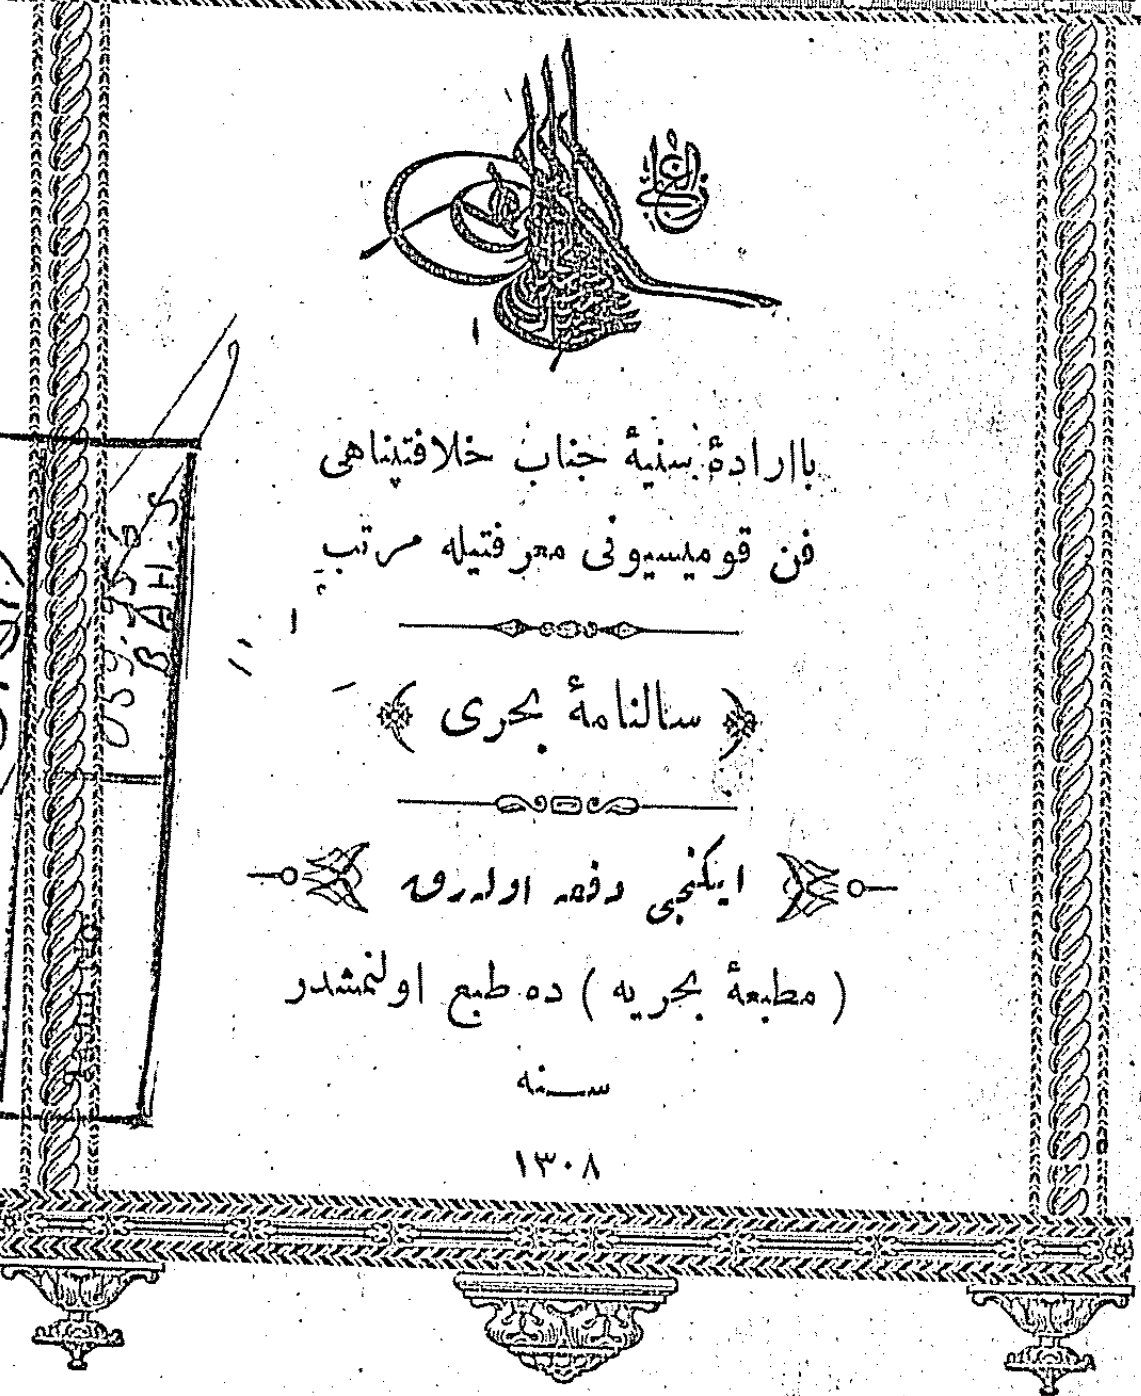 الغازی
باارادهٔ سنیهٔ جناب خلافتپناهی
فن قومیسیونی معرفتیله مرتب
سالنامهٔ بحری
ایكنجی دفعه اولەرق
( مطبعهٔ بحریه ) ده طبع اولنمشدر
سنه
١٣٠٨